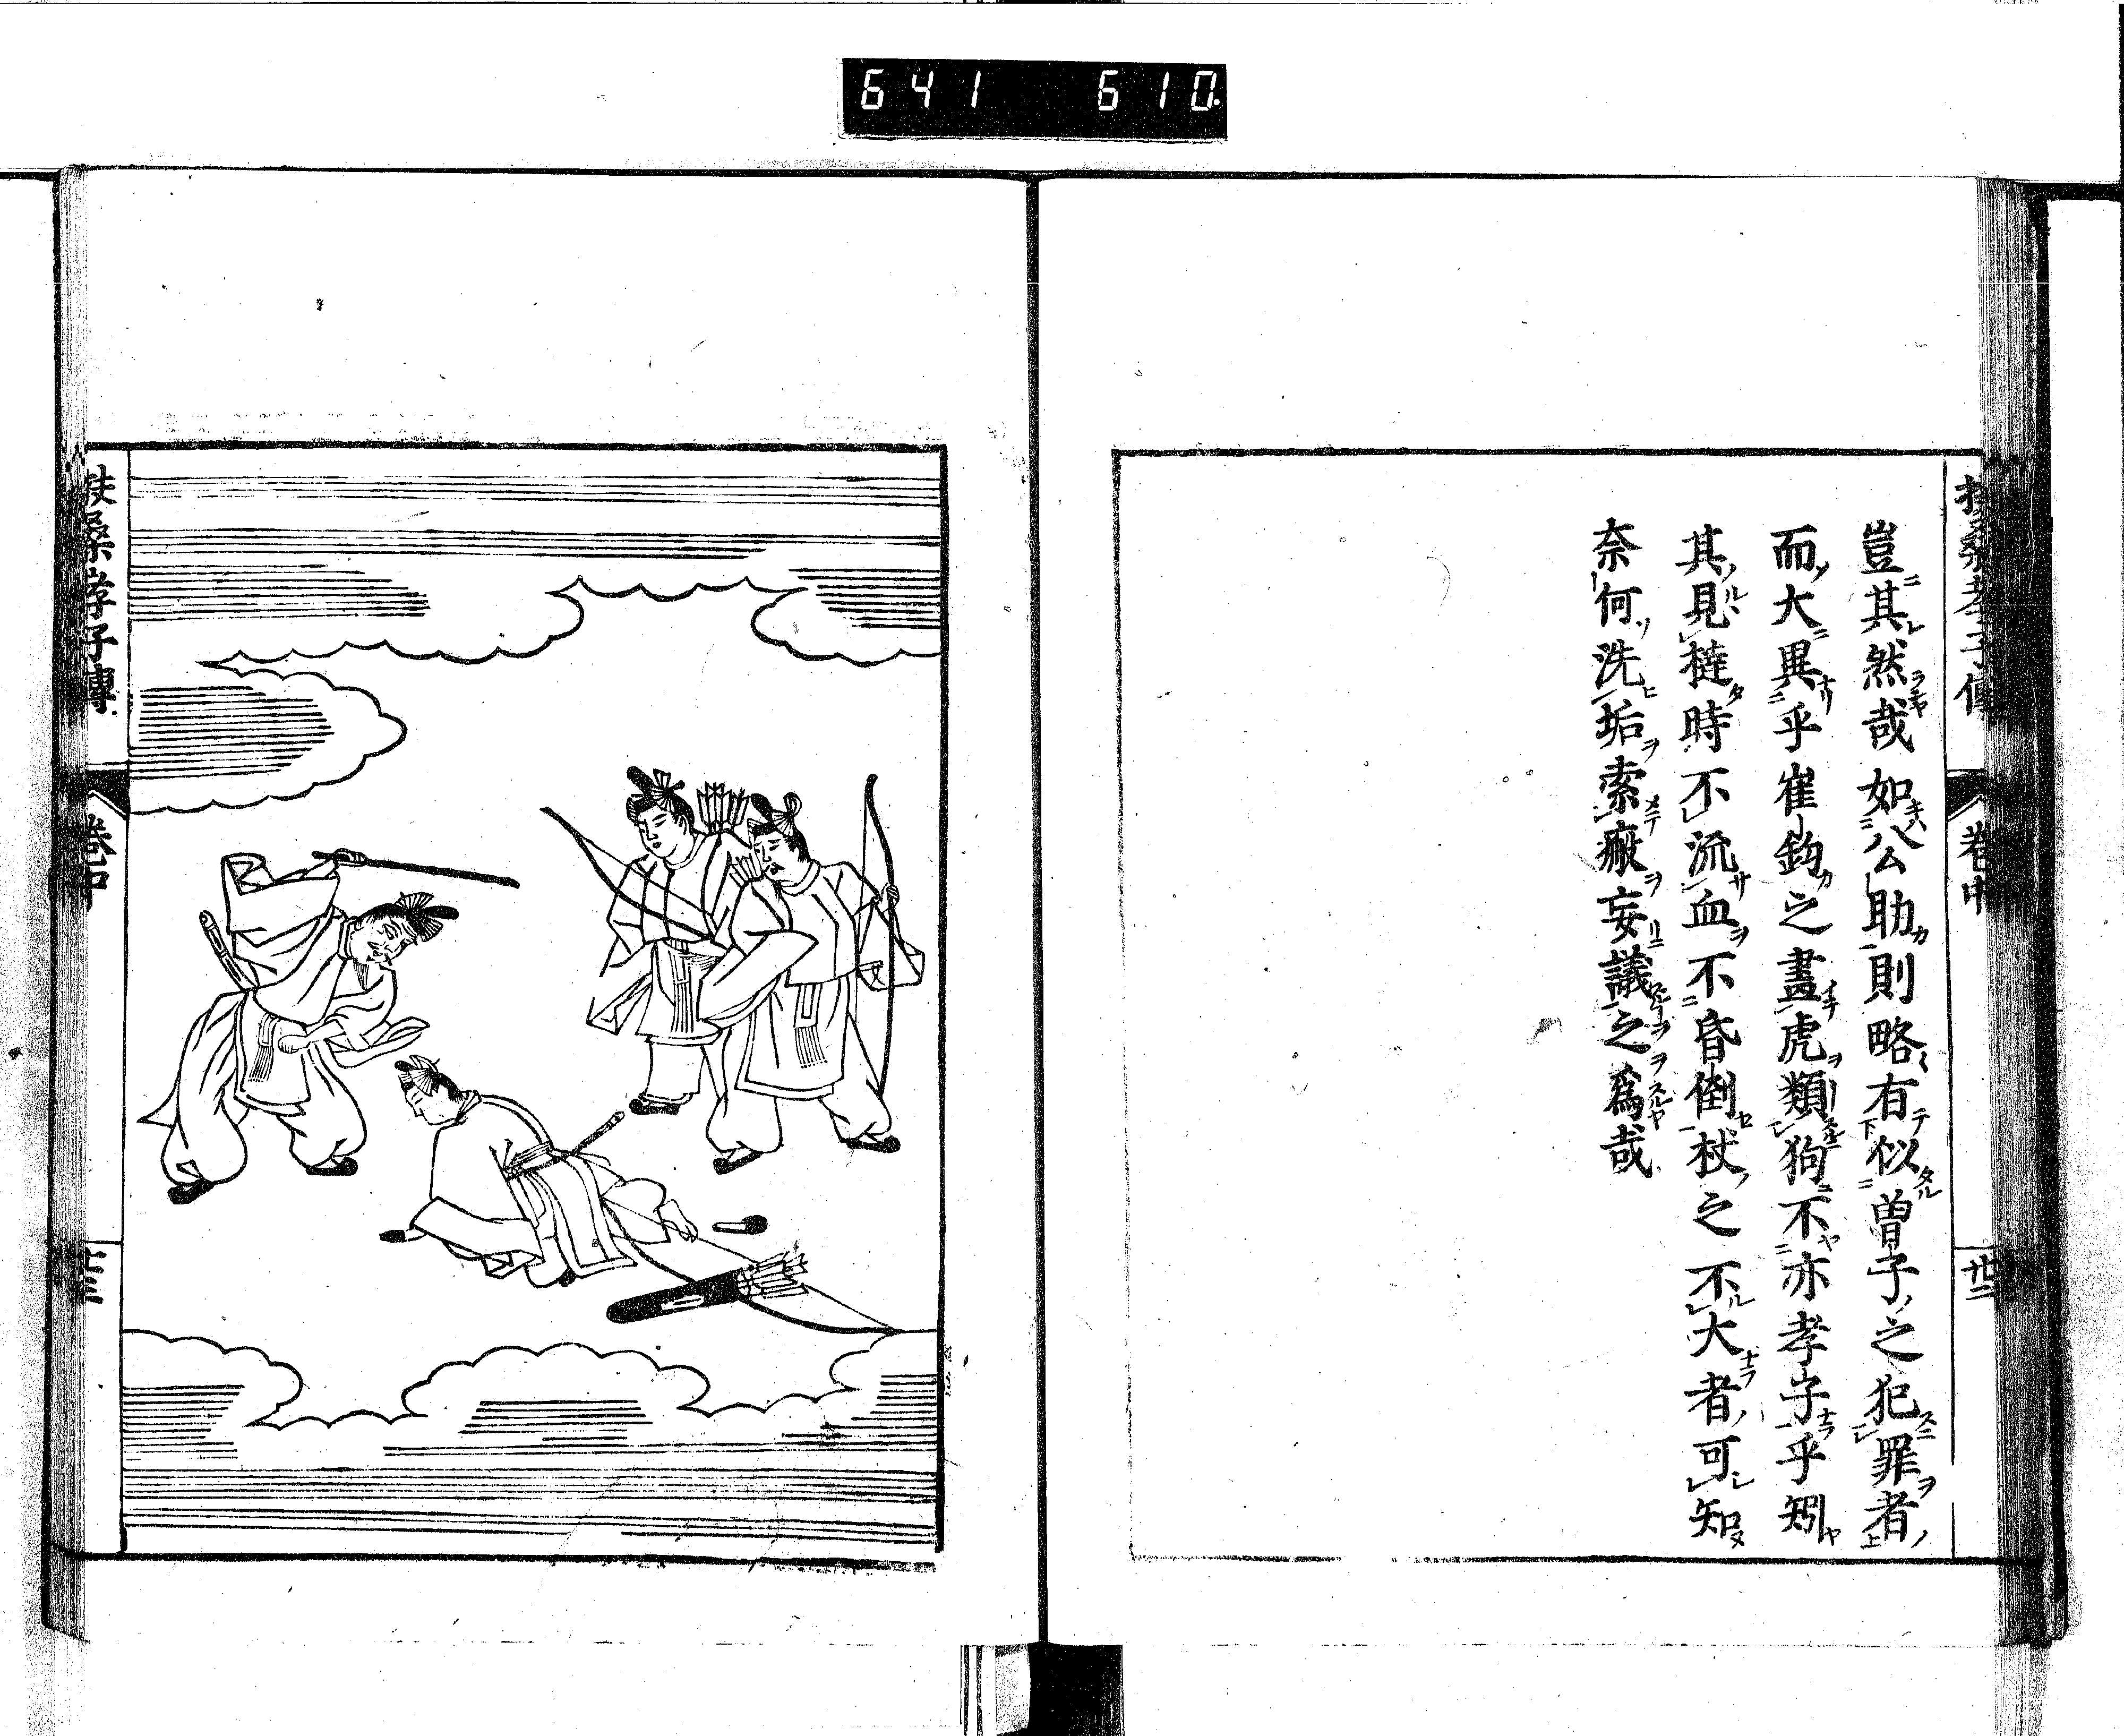 641 610.
扶桑孝子傳 卷中 廿二
豈其然哉如公助則略有似曽子之犯罪者
而大異乎崔鈞之畫虎類狗不亦孝子乎矧
其見撻時不流血不昏倒杖之不大者可知
奈何洗垢索瘢妄議之為哉
扶桑孝子傳 卷中